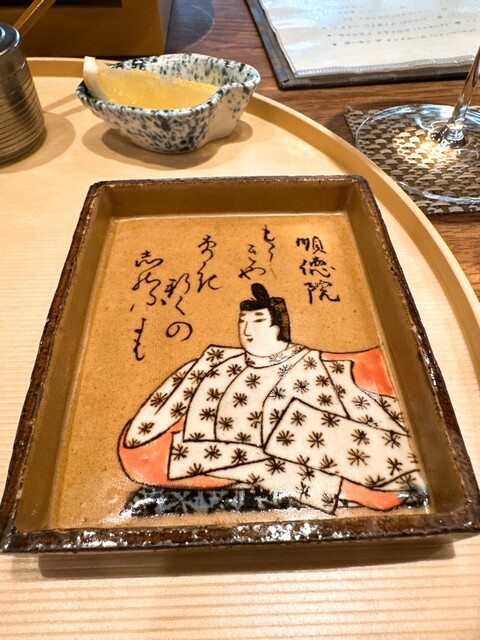 順徳院
もゝしきや
ふるき
軒はの
志のふにも